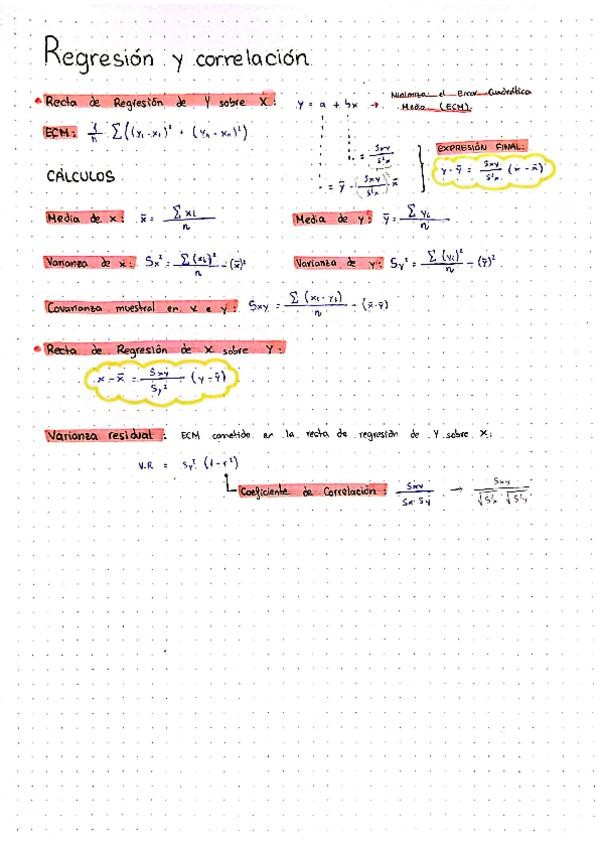 Regresión y correlación
• Recta de Regresión de Y sobre X: y = a + bx → Minimiza el Error Cuadrático Medio (ECM).
ECM: 1/n · Σ((y₁-x₁)² + (yₙ-xₙ)²)
b = Sxy/S²x
a = ȳ - (Sxy/S²x) · x̄
EXPRESIÓN FINAL:
y - ȳ = Sxy/S²x · (x - x̄)
CÁLCULOS
Media de x: x̄ = Σxᵢ/n
Media de y: ȳ = Σyᵢ/n
Varianza de x: Sx² = Σ(xᵢ)²/n - (x̄)²
Varianza de y: Sy² = Σ(yᵢ)²/n - (ȳ)²
Covarianza muestral en x e y: Sxy = Σ(xᵢ·yᵢ)/n - (x̄·ȳ)
• Recta de Regresión de X sobre Y:
x - x̄ = Sxy/Sy² · (y - ȳ)
Varianza residual: ECM cometido en la recta de regresión de Y sobre X:
V.R = Sy² (1-r²)
Coeficiente de Correlación: Sxy/Sx·Sy → Sxy/√S²x · √S²y